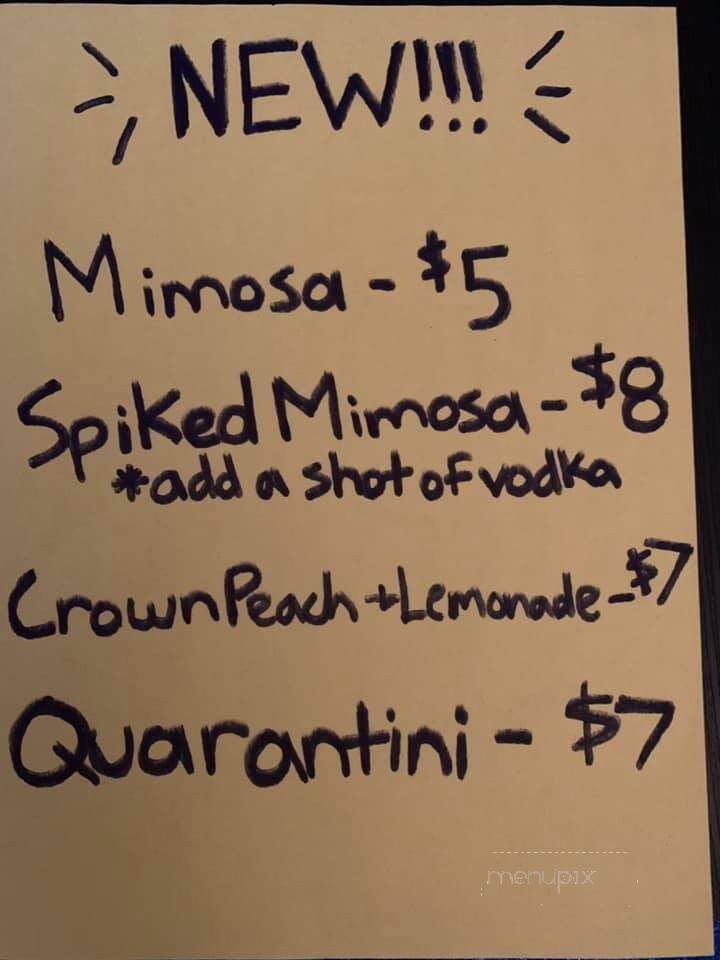 NEW!!!
Mimosa - $5
Spiked Mimosa - $8
*add a shot of vodka
Crown Peach + Lemonade - $7
Quarantini - $7
menupix